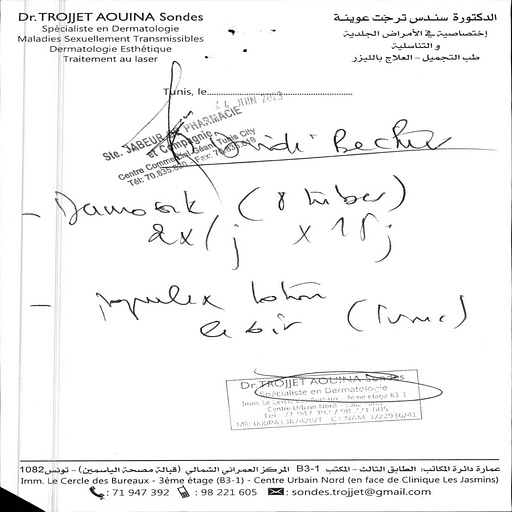 Dr. TROJJET AOUINA Sondes
Spécialiste en Dermatologie
Maladies Sexuellement Transmissibles
Dermatologie Esthétique
Traitement au laser
الدكتورة سندس ترجت عوينة
إختصاصية في الأمراض الجلدية
و التناسلية
طب التجميل - العلاج بالليزر
Tunis, le
14 JUIN 2023
Ste. JABEUR PHARMACIE
et Compagnie
Centre Commercial Géant Tunis City
Tél: 70.835. Fax: 70.835.
Becher
- (8 tubes)
2x/j x 15j
- lotion
le soir (1 tube)
Dr. TROJJET AOUINA Sondes
Spécialiste en Dermatologie
Imm. Le Cercle des Bureaux - 3ème étage B3-1
Centre Urbain Nord
عمارة دائرة المكاتب، الطابق الثالث - المكتب B3-1 المركز العمراني الشمالي (قبالة مصحة الياسمين) - تونس 1082
Imm. Le Cercle des Bureaux - 3ème étage (B3-1) - Centre Urbain Nord (en face de Clinique Les Jasmins)
: 71 947 392 : 98 221 605 : sondes.trojjet@gmail.com